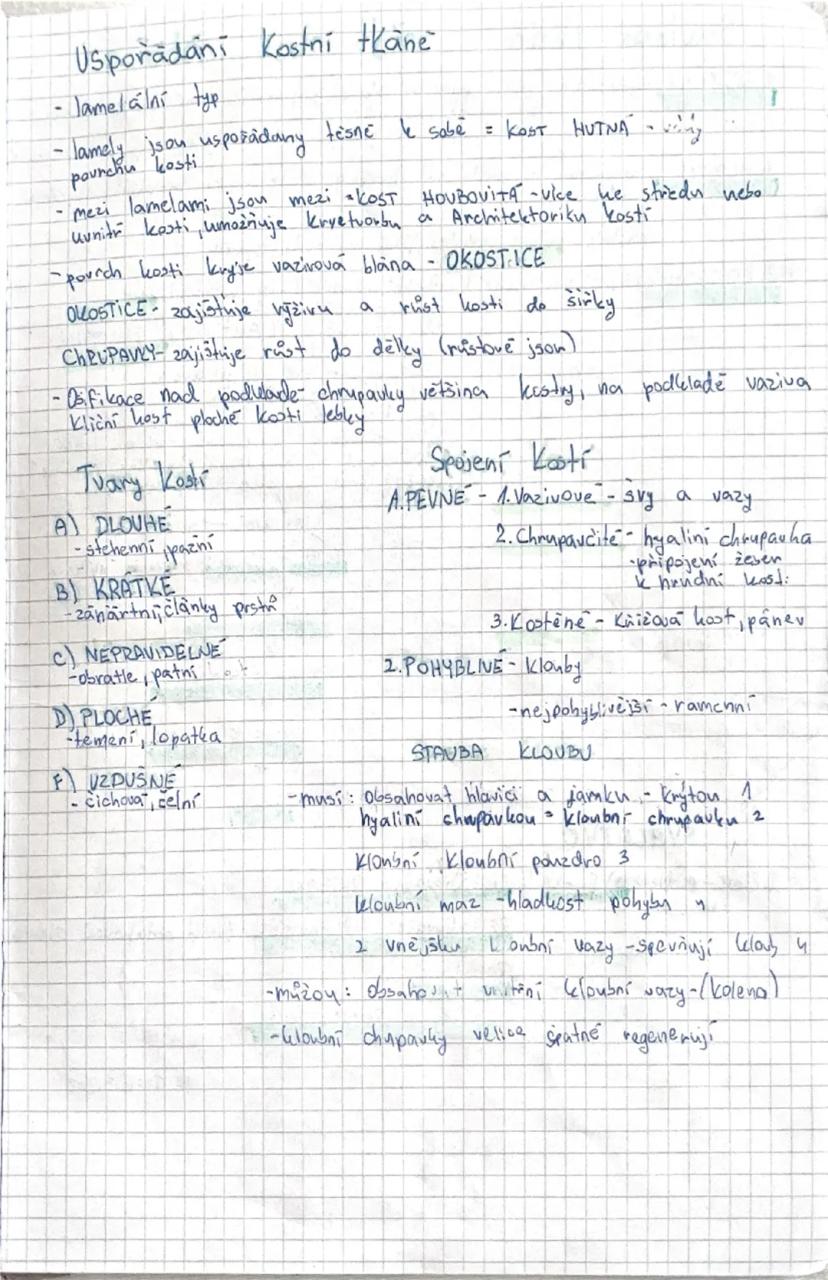 Uspořádání kostní tkáně
- lamelální typ
- lamely jsou uspořádany těsně k sobě = KOST HUTNÁ -
povrchu kosti
- mezi lamelami jsou mezi = KOST HOUBOVITÁ - více ke středu nebo
uvnitř kosti, umožňuje krvetvorbu a Architektoriku kostí
- povrch kosti kryje vazivová blána - OKOSTICE
OKOSTICE - zajišťuje výživu a růst kosti do šířky
ChRUPAVKY - zajišťuje růst do délky (růstové jsou)
- Osifikace nad podkladě chrupavky většina kostry, na podkladě vaziva
klíční kost ploché kosti lebky
Tvary kostí
A) DLOUHÉ
- stehenní, pažní
B) KRÁTKÉ
- zánártní, články prstů
C) NEPRAVIDELNÉ
- obratle, patní
D) PLOCHÉ
- temení, lopatka
F) VZDUŠNÉ
- čichová, čelní
Spojení kostí
A. PEVNÉ - 1. Vazivové - švy a vazy
2. Chrupavčité - hyaliní chrupavka
- připojení žeber
k hrudní kosti
3. Kostěné - křížová kost, pánev
2. POHYBLIVÉ - klouby
- nejpohyblivější - ramenní
STAVBA KLOUBU
- musí: Obsahovat hlavici a jamku - krytou 1
hyaliní chrupávkou = kloubní chrupavku 2
Kloubní kloubní pouzdro 3
kloubní maz - hladkost pohybu 4
z vnějšku kloubní vazy - zpevňují kloub 4
- můžou: Obsahovat vnitřní kloubní vazy - (kolena)
- kloubní chrupavky velice špatně regenerují